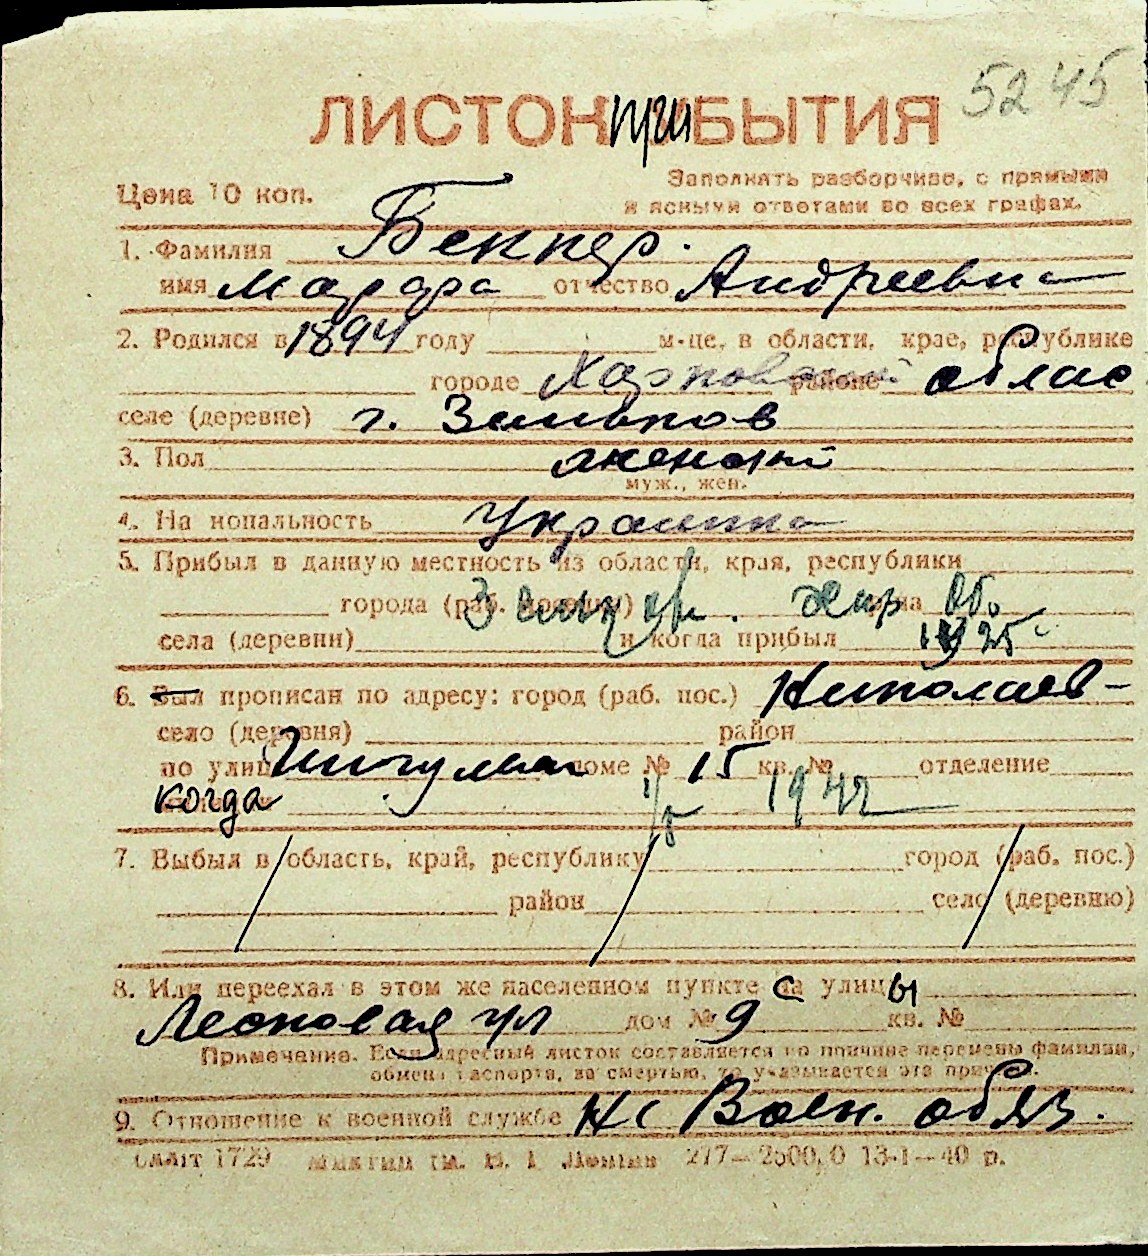 5245
ЛИСТОК приБЫТИЯ
Цена 10 коп.
Заполнять разборчиво, с прямыми
и ясными ответами во всех графах.
1. Фамилия Беккер
имя отчество Андреевна
2. Родился в 1894 году м-це, в области, крае, республике
городе Харковской районе облас
селе (деревне) г. Зеньков
3. Пол женский
муж., жен.
4. На нопальность Украинка
5. Прибыл в данную местность из области, края, республики
города (раб. Зеньков. Хар на об.
села (деревни) и когда прибыл 1925
6. Был прописан по адресу: город (раб. пос.) Николаев-
село (деревня) район
по улице Ингульск доме № 15 кв. № отделение
когда 1/5 1942
7. Выбыл в область, край, республику город (раб. пос.)
район село (деревню)
8. Или переехал в этом же населенном пункте с улицы
ул дом № 9 кв. №
Примечание. Если адресный листок составляется по причине перемены фамилии,
обмена паспорта, за смертью, то указывается эта причина.
9. Отношение к военной службе не Воен. обяз.
1729 277—2500,0 13-1—40 р.